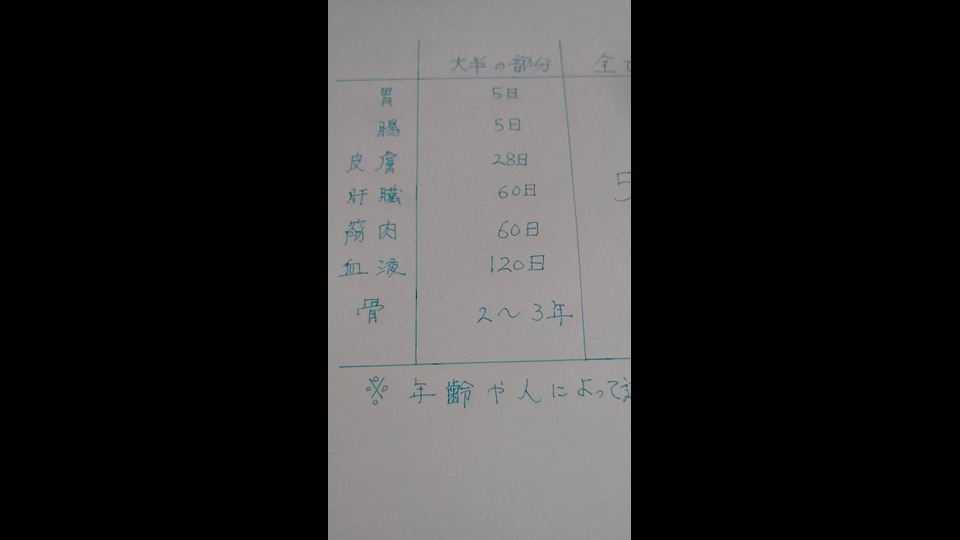 大半の部分 全て
胃 5日
腸 5日
皮膚 28日
肝臓 60日 5
筋肉 60日
血液 120日
骨 2～3年
※ 年齢や人によって